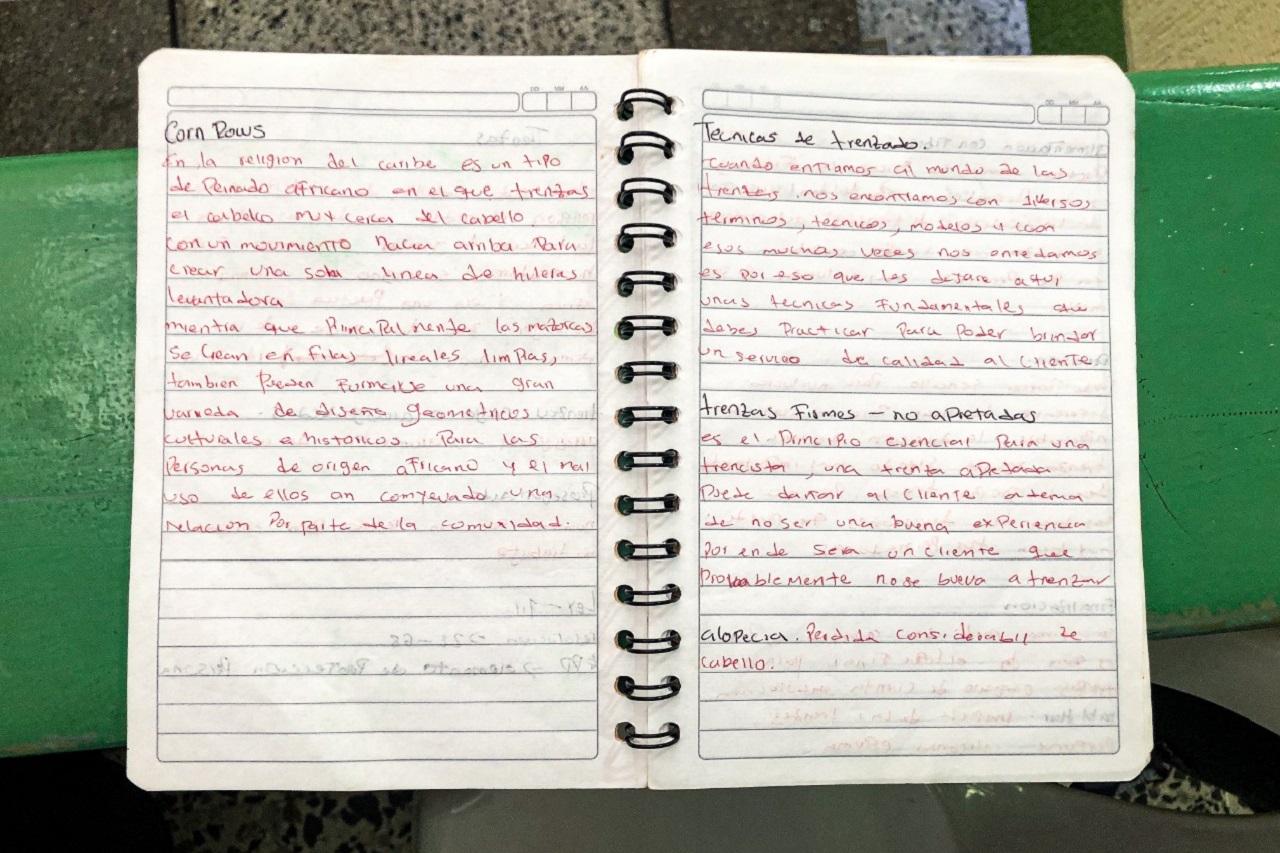 Corn Rows
En la religion del caribe es un tipo
de Peinado africano en el que trenzas
el cabello muy cerca del cabello
con un movimiento hacia arriba Para
crear una sola linea de hileras
levantadora
mientra que Principalmente las mazorcas
se crean en filas lineales limpias,
tambien Pueden Formarse una gran
varieda de diseño geometricos
culturales e historicos. Para las
Personas de origen africano y el mal
uso de ellos an comyevado una
relacion Por parte de la comunidad.
DD MM AA
Tecnicas de trenzado.
cuando entramos al mundo de las
trenzas nos encontramos con diversos
terminos, tecnicos, modelos y con
esos muchas veces nos enredamos
es por eso que les dejare aqui
unas tecnicas Fundamentales que
debes Practicar Para Poder brindar
un servicio de calidad al cliente
trenzas Firmes - no aPretadas
es el Principio esencial Para una
trencista, una trenza aPretada
Puede dañar al Cliente adema
de no ser una buena exPeriencia
Por ende sera un cliente que
Probablemente no se bueva a trenzar
alopecia. Perdida considerabll de
cabello.
DD MM AA